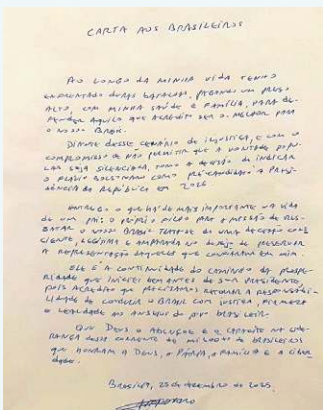 CARTA AOS BRASILEIROS
AO LONGO DA MINHA VIDA TENHO
ENFRENTADO DURAS BATALHAS, PAGANDO UM PREÇO
ALTO, COM MINHA SAÚDE E FAMÍLIA, PARA DE-
FENDER AQUILO QUE ACREDITO SER O MELHOR PARA
O NOSSO BRASIL.
DIANTE DESSE CENÁRIO DE INJUSTIÇA, E COM O
COMPROMISSO DE NÃO PERMITIR QUE A VONTADE POPU-
LAR SEJA SILENCIADA, TOMO A DECISÃO DE INDICAR
O FLÁVIO BOLSONARO COMO PRÉ-CANDIDATO A PRESI-
DÊNCIA DA REPÚBLICA EM 2026
ENTREGO O QUE HÁ DE MAIS IMPORTANTE NA VIDA
DE UM PAI: O PRÓPRIO FILHO PARA A MISSÃO DE RES-
GATAR O NOSSO BRASIL. TRATA-SE DE UMA DECISÃO CONS-
CIENTE, LEGÍTIMA E AMPARADA NO DESEJO DE PRESERVAR
A REPRESENTAÇÃO DAQUELES QUE CONFIARAM EM MIM.
ELE É A CONTINUIDADE DO CAMINHO DA PROSPE-
RIDADE QUE INICIEI BEM ANTES DE SER PRESIDENTE,
POIS ACREDITO QUE PRECISAMOS RETOMAR A RESPONSABI-
LIDADE DE CONDUZIR O BRASIL COM JUSTIÇA, FIRMEZA
E LEALDADE AOS ANSEIOS DO POVO BRASILEIRO.
QUE DEUS O ABENÇOE E O CAPACITE NA LIDE-
RANÇA DESSA CORRENTE DE MILHÕES DE BRASILEIROS
QUE HONRAM A DEUS, A PÁTRIA, A FAMÍLIA E A LIBER-
DADE.
BRASÍLIA, 25 DE DEZEMBRO DE 2025